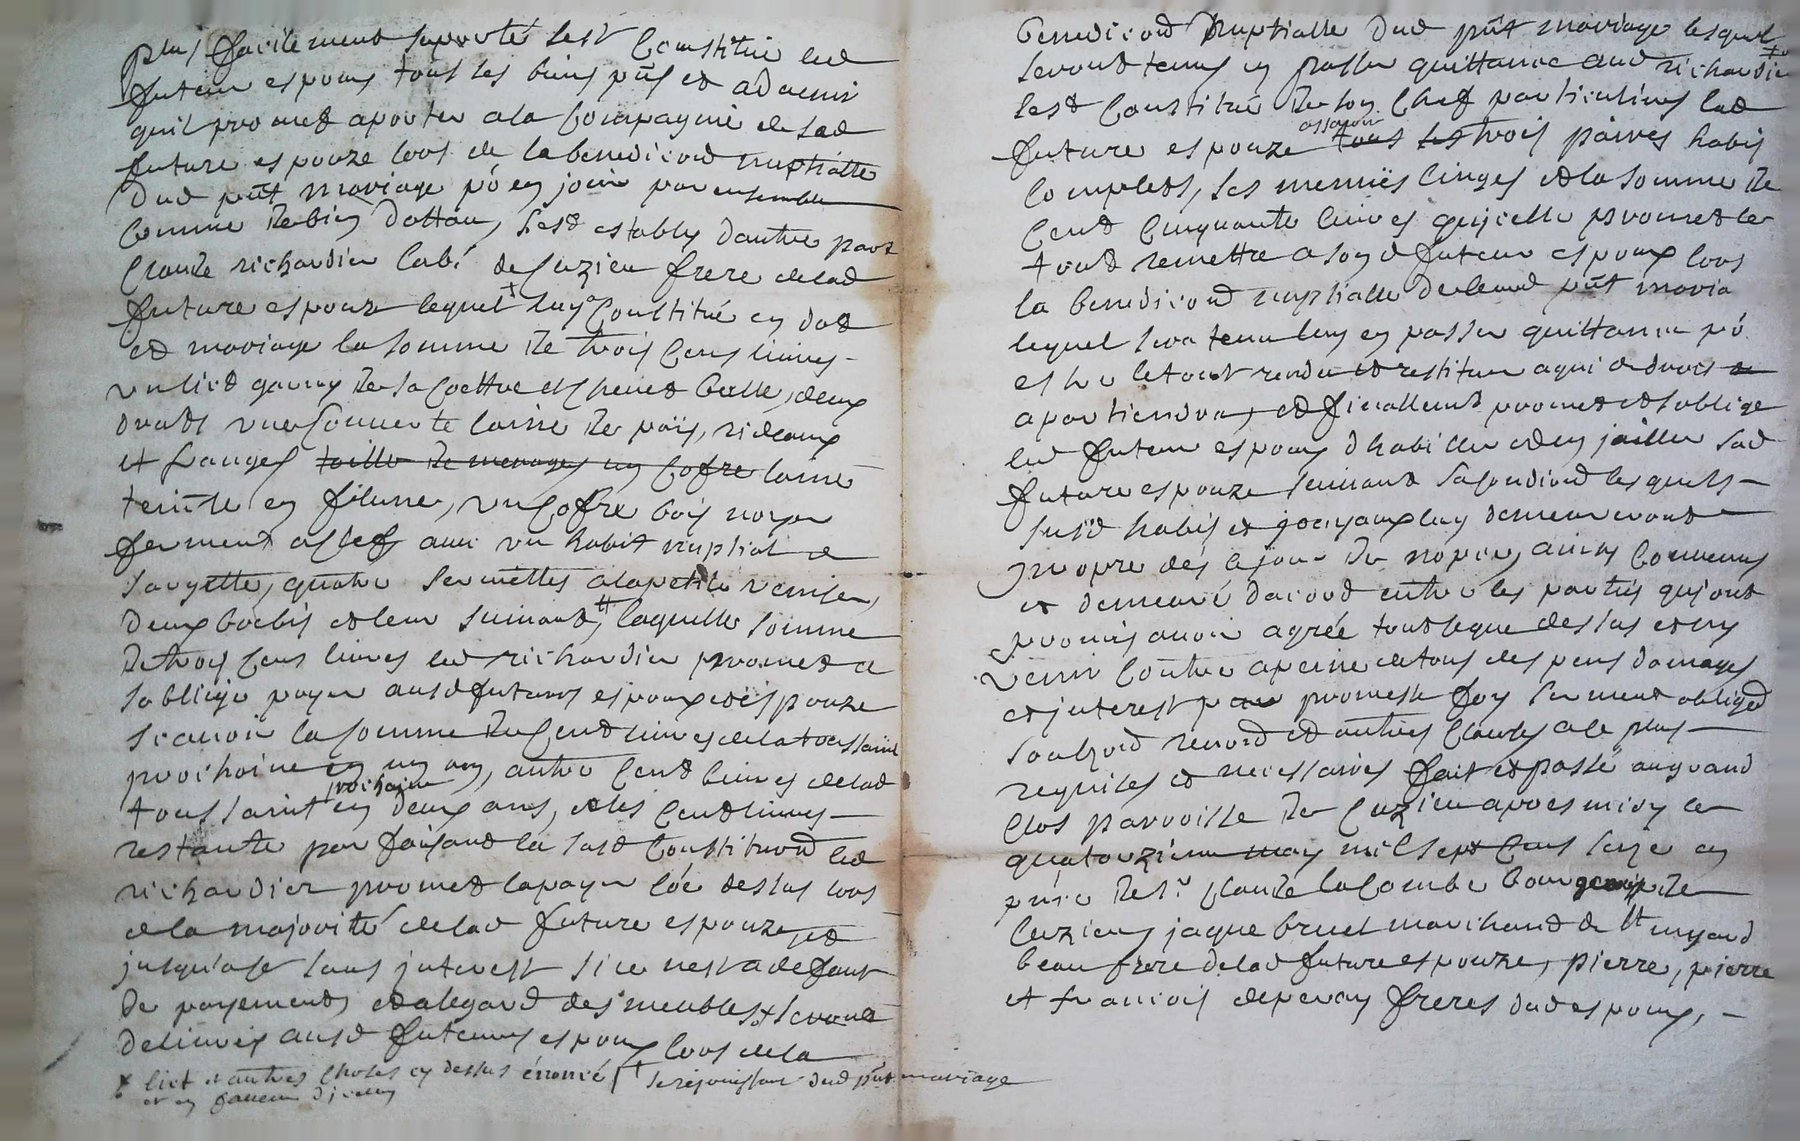 plus facilement suporté sest Constitué led
futeur espoux tous ses biens pñs et advenir
quil promet aporter a la Compagnie de sad
future espouze lors de la benediction nuptialle
dud pñt mariage po en joir par ensemble
Comme de bien dottau, sest estably dautre part
Claude richardier labé de Cuzieu frere de lad
future espouze lequel luy a Constitué en dot
et mariage la somme de trois Cens livres
un lict garny de sa Coettre et Chevet balle, deux
draps une Couverte laine de païs, rideaux
et franges taille de menages un Cofre laine
teinte en , un Cofre bois noyer
fermant a Clef avec un habit nuptial de
sargette, quatre serviettes a la petite venise,
deux brebis et leur suivant, laquelle somme
de trois Cens livres led richardier promet et
soblige payer ausd futeurs espoux et espouze
scavoir la somme de Cent livres de la toussaint
prochaine en un an, autre Cent livres de lad
toussaint prochaine en deux ans, et les Cent livres
restante par faisant la susd Constitution led
richardier promet la payer lors
de la majorité de lad future espouze et
jusqua sans interest si ce nest a defaut
de payement, et a legard des meubles seront
delivrés ausd futeurs espoux lors de la
x lict et autres Choses cy dessus énoncé se rejouissant dud pñt mariage
et en faveur dicelluy
benediction nuptialle dud pñt mariage lesquels
seront tenus en passer quittance aud richardier
sest Constitué de son Chef particulier lad
future espouze assavoir tous ses trois paires habis
Complets, ses menues linges et la somme de
Cent Cinquante livres quicelle promet le
tout remettre a son d futeur espoux lors
la benediction nuptialle de leurd pñt maria
lequel sera tenu luy en passer quittance po
estre le tout rendu et restitué a qui de droit
apartiendra, et finallement promet et soblige
led futeur espoux dhabiller et enjoailler sad
future espouze suivant sa condiction lesquels
susd habis et joyaux luy demeureront
propre dés le jour de nopces, ainsy Convenus
et demeuré dacord entre les parties quont
promis avoir agrée tout le que dessus et ny
venir Contre a peine de tous despens domages
et interest par promesse foy serment obligõn
soubzõn renonõn et autres Clauses a le plus
requises et necessaires fait et passé au grand
Clos parroisse de Cuzieu apres midy le
quatorzieme may mil sept Cens seize en
pñce de sr. Claude laCombe bourgeois de
Cuzieu, jaque bruel marchand de st
beau frere de lad future espouze, pierre, pierre
et francois deperay freres dud espoux,